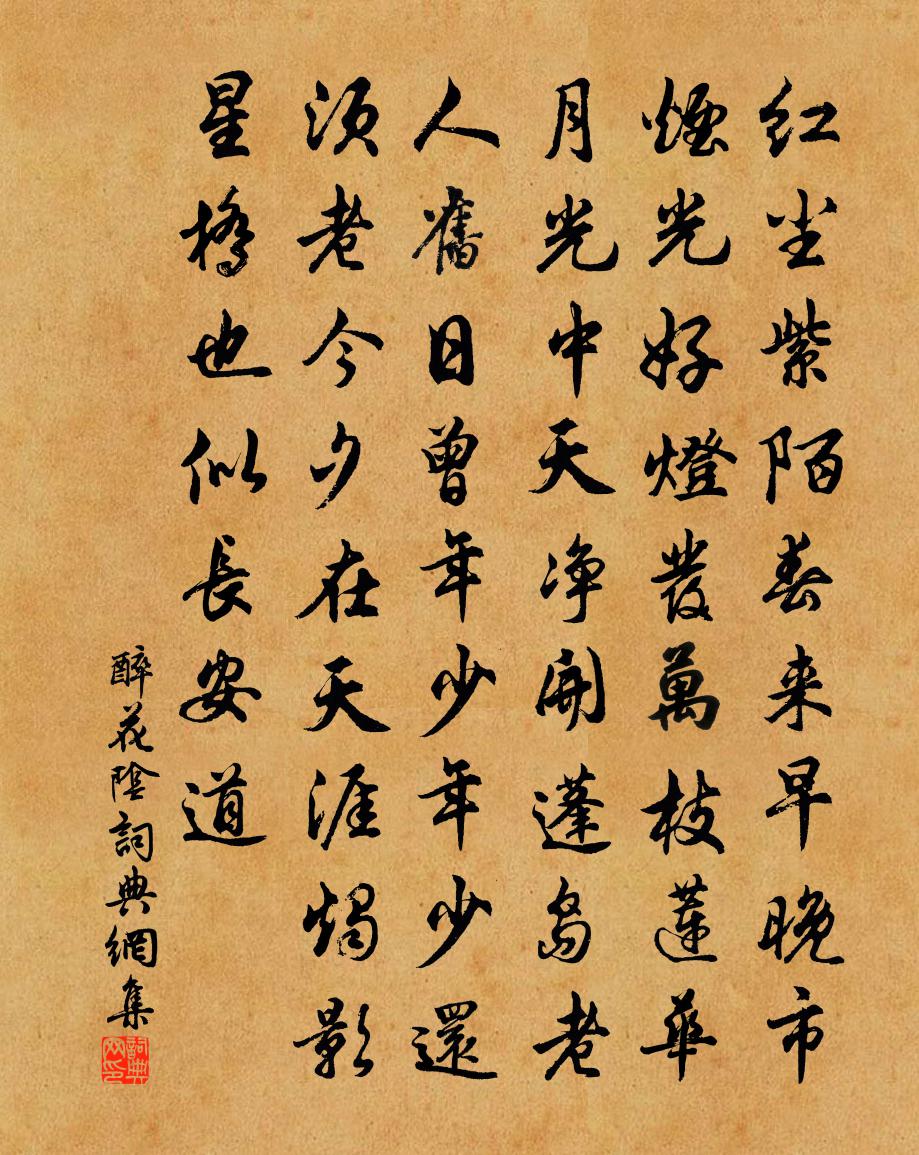 红尘紫陌春来早晚市
煙光好燈發萬枝蓮華
月光中天净開蓬島老
人舊日曾年少年少還
須老今夕在天涯燭影
星橋也似長安道
醉花陰詞典網集
詞典网印